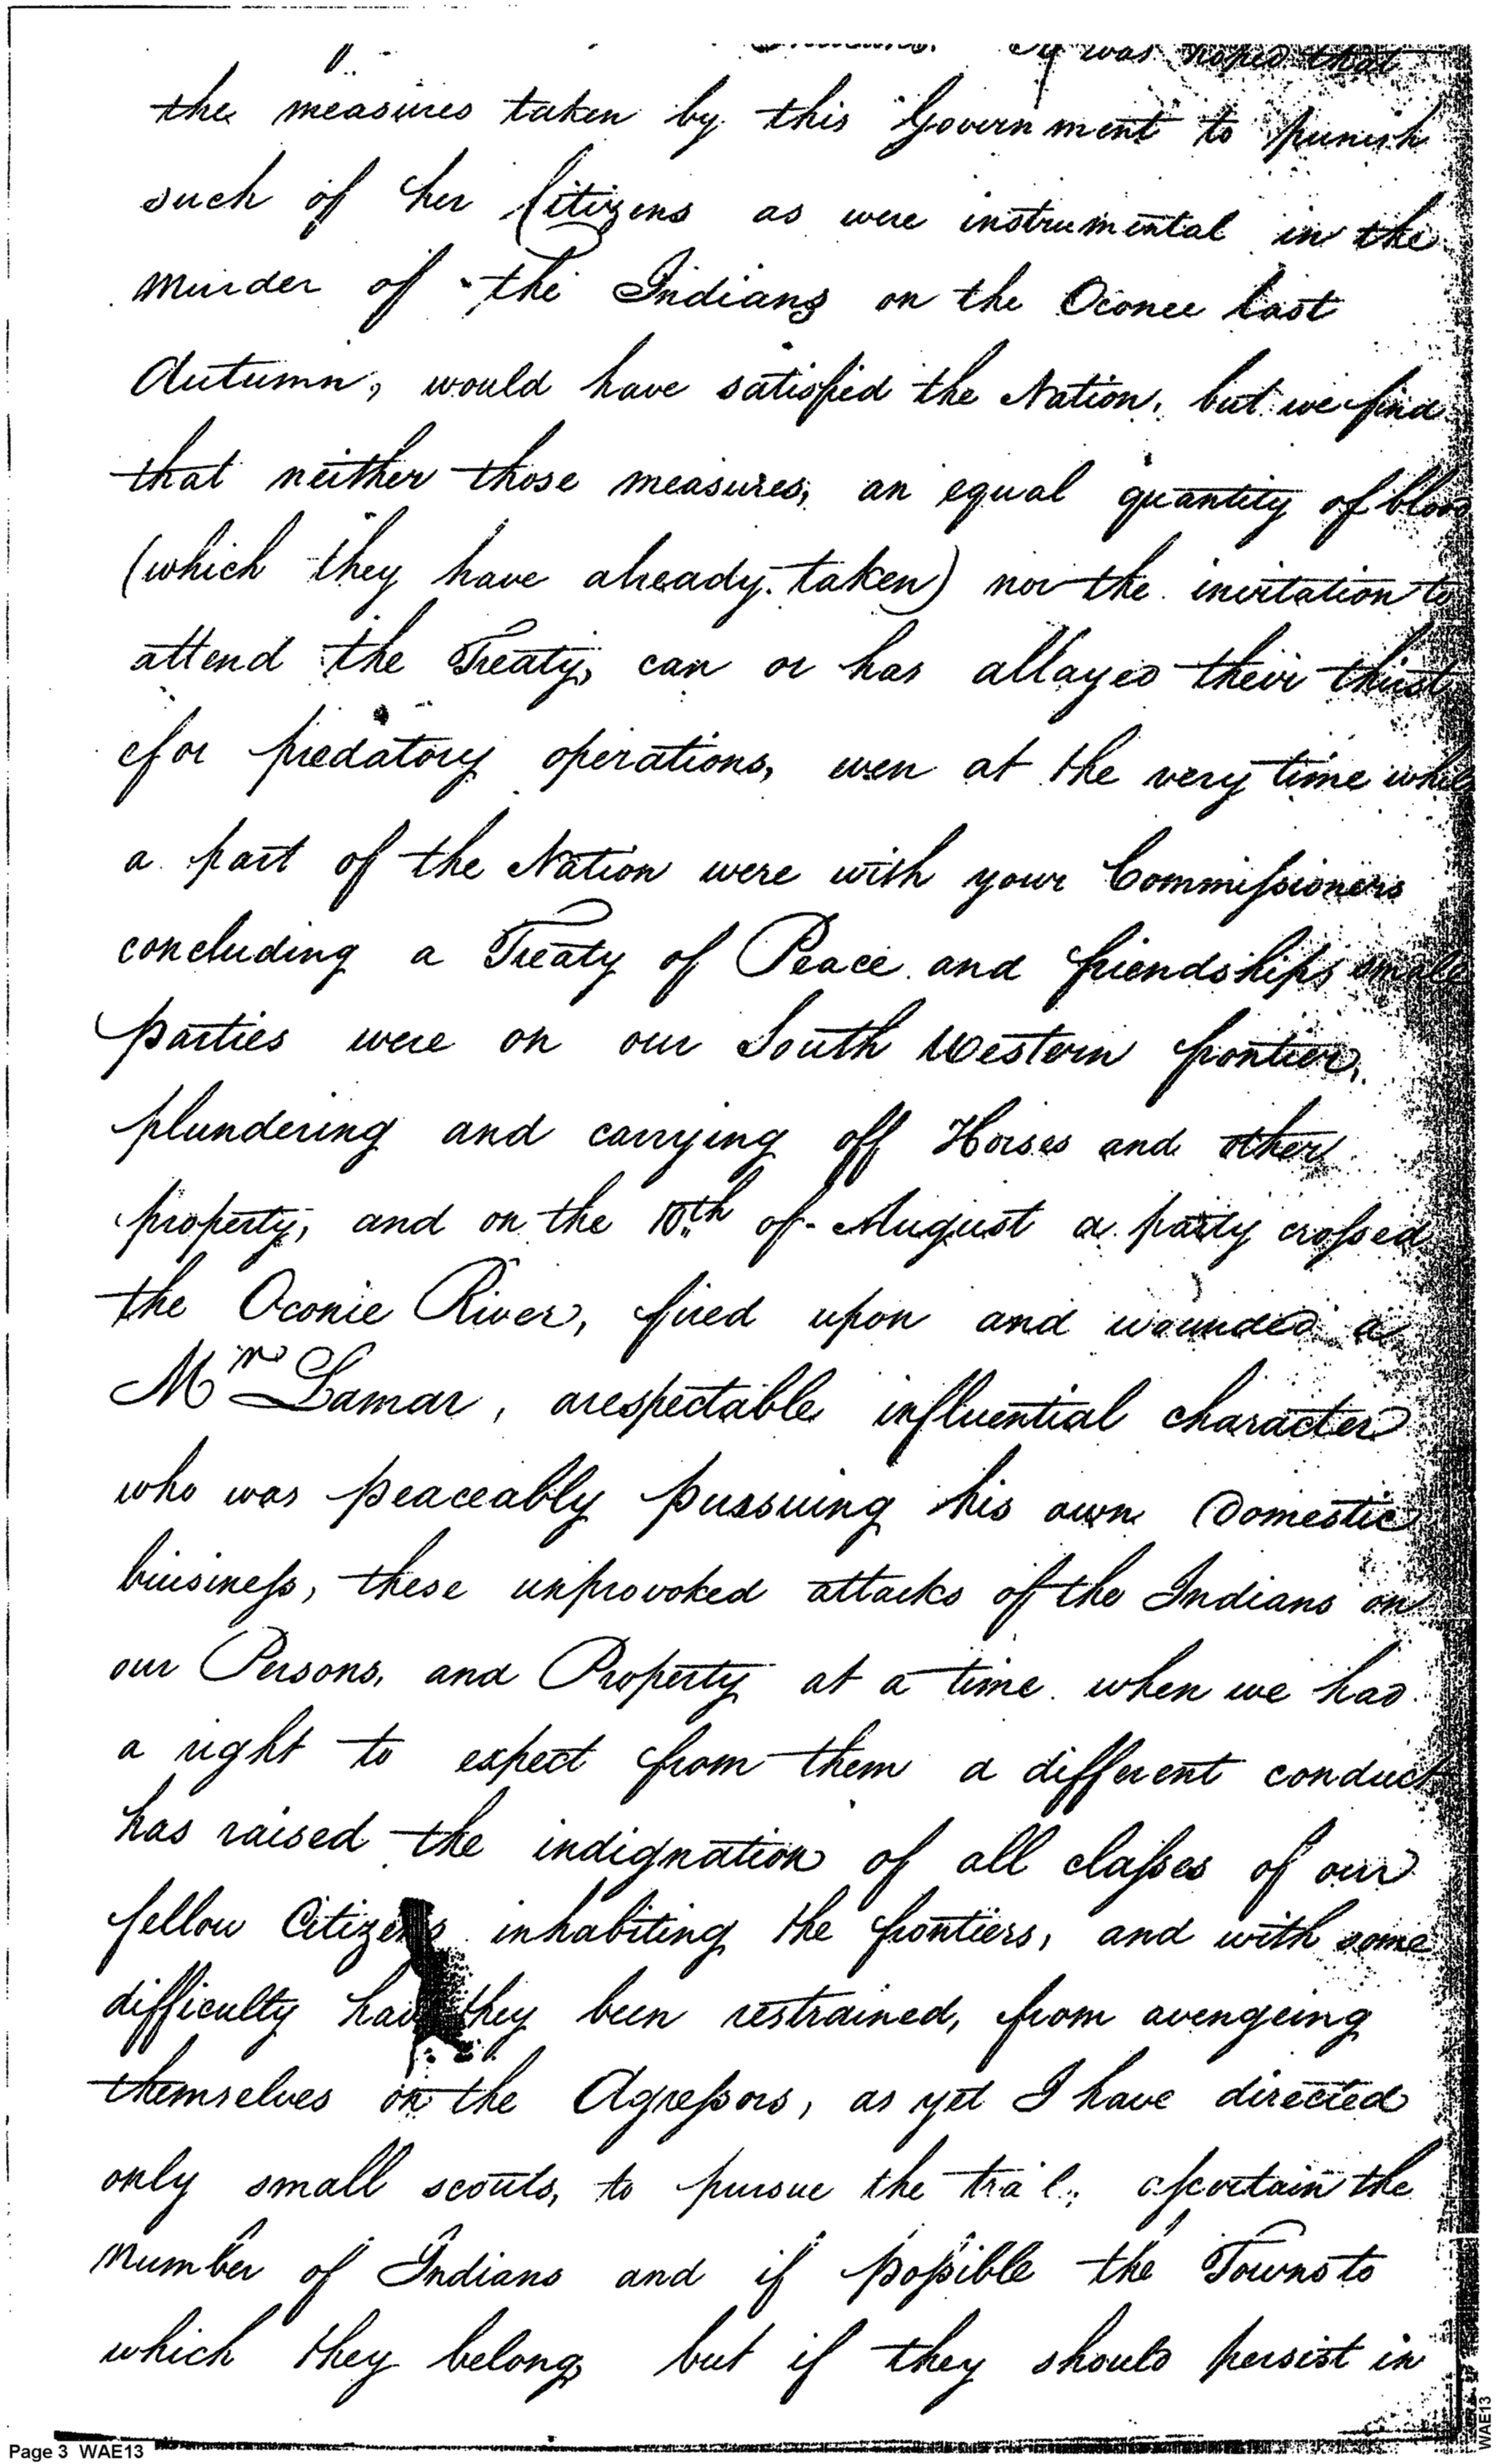 It was hoped that
the measures taken by this Government to punish
such of her Citizens as were instrumental in the
murder of the Indians on the Oconee last
Autumn, would have satisfied the Nation, but we find
that neither those measures, an equal quantity of blood
(which they have already taken) nor the invitation to
attend the Treaty, can or has allayed their thirst
for predatory operations, even at the very time while
a part of the Nation were with your Commissioners
concluding a Treaty of Peace and friendships small
parties were on our South Western frontier,
plundering and carrying off Horses and other
property, and on the 10th of August a party crossed
the Oconie River, fired upon and wounded a
Mr Lamar, a respectable influential character
who was peaceably pursuing his own Domestic
business, these unprovoked attacks of the Indians on
our Persons, and Property at a time when we had
a right to expect from them a different conduct
has raised the indignation of all classes of our
fellow Citizens inhabiting the frontiers, and with some
difficulty have they been restrained, from avengeing
themselves on the Agressors, as yet I have directed
only small scouts, to pursue the trail, ascertain the
number of Indians and if possible the Towns to
which they belong, but if they should persist in
Page 3 WAE13
WAE13